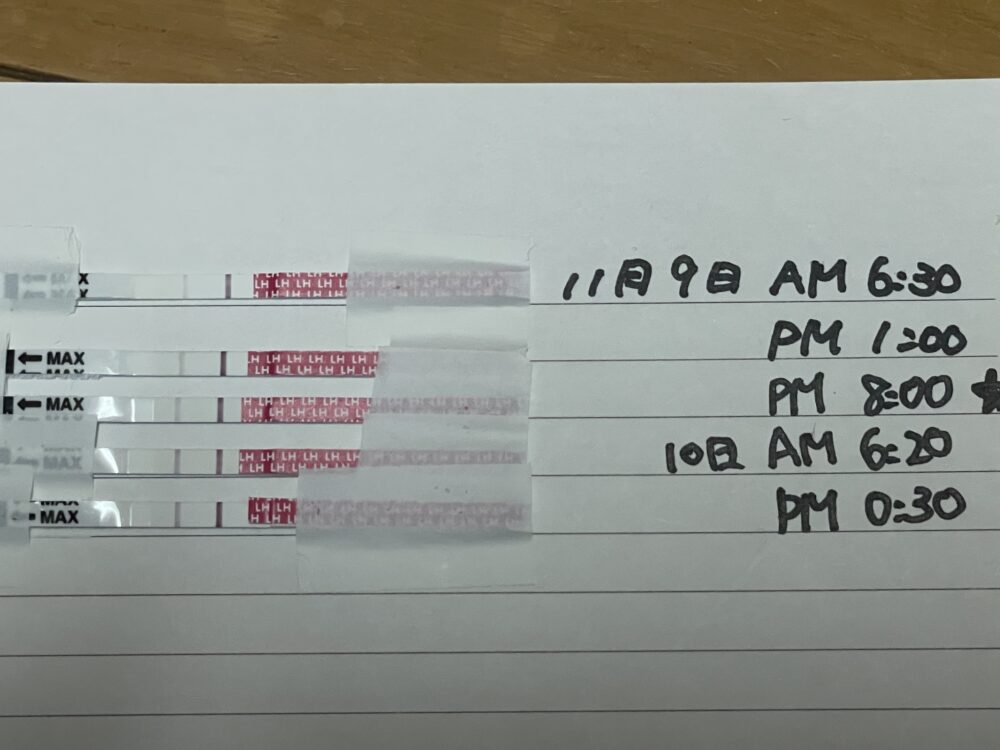 LH LH LH LH LH 11月9日 AM 6:30
← MAX LH LH LH LH LH LH PM 1:00
← MAX LH LH LH LH LH LH PM 8:00 ★
MAX LH LH LH LH LH 10日 AM 6:20
MAX LH LH LH PM 0:30